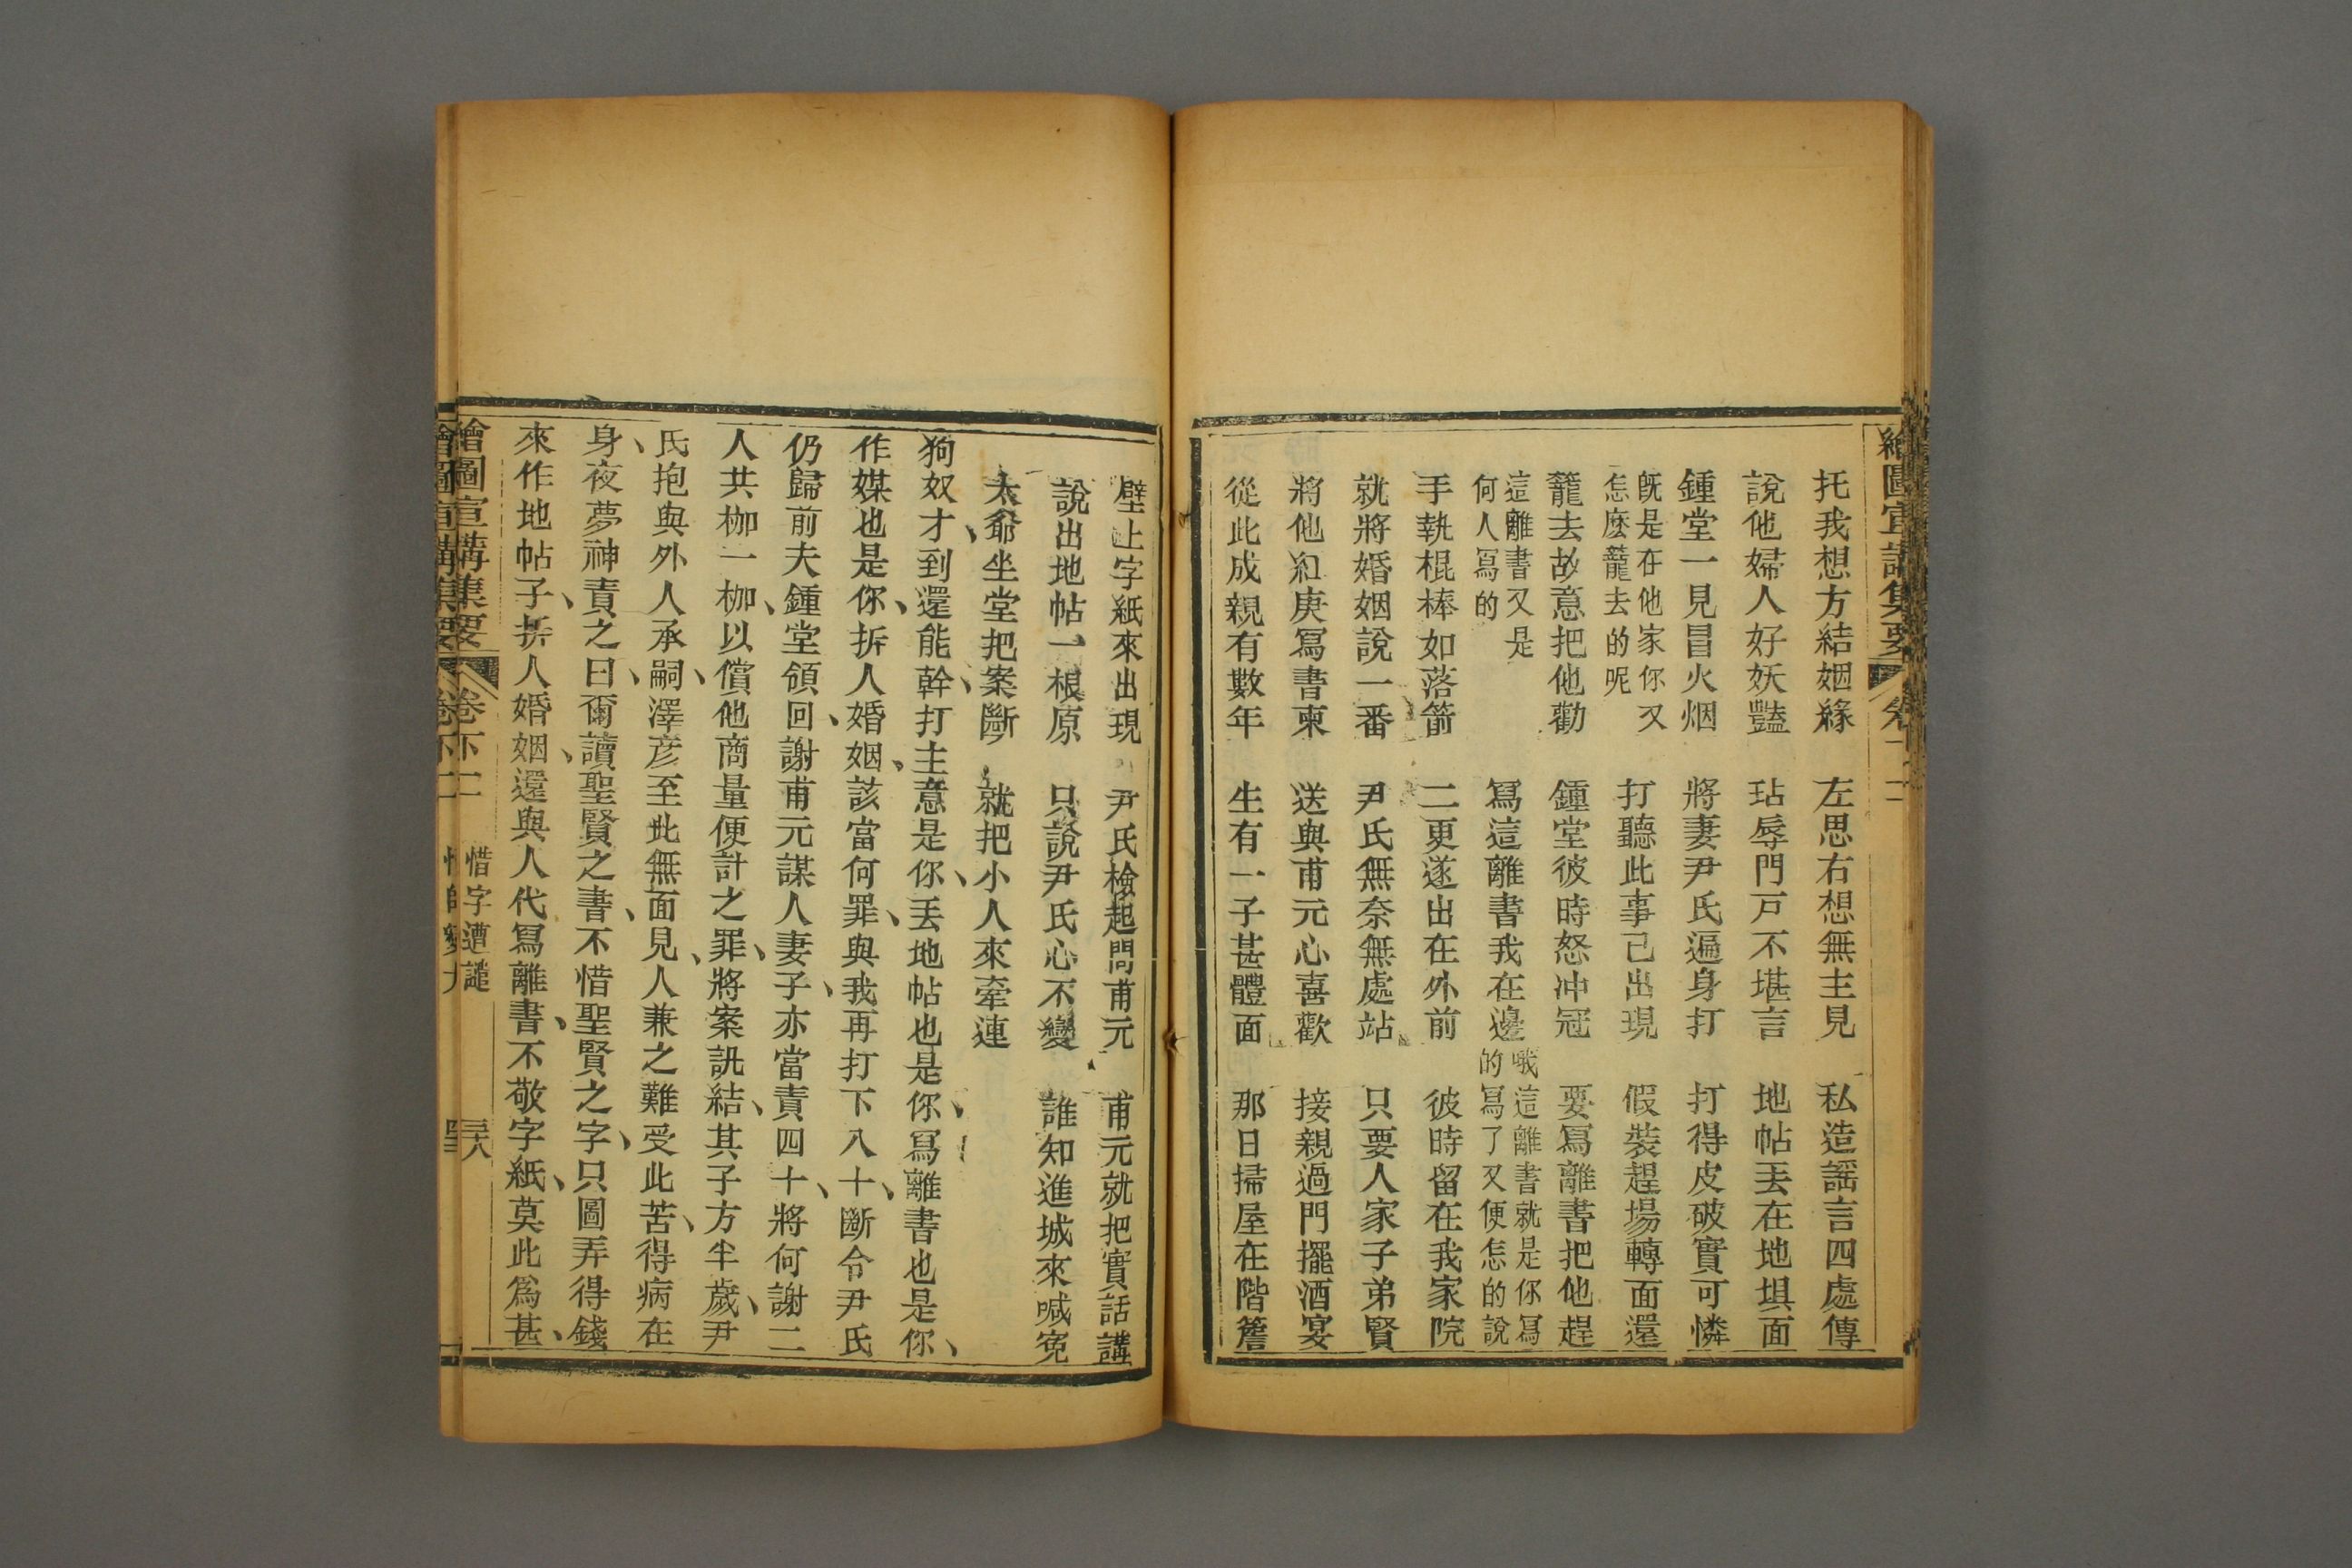 繪圖宣講集要
托我想方結姻緣 左思右想無主見 私造謠言四處傳
說他婦人好妖豔 玷辱門戸不堪言 地帖丟在地埧面
鍾堂一見冒火烟 將妻尹氏遍身打 打得皮破實可憐
旣是在他家你又
怎麽蘢去的呢
打聽此事已出現 假裝趕場轉面還
蘢去故意把他勸 鍾堂彼時怒冲冠 要寫離書把他趕
這離書又是
何人寫的
寫這離書我在邊
哦這離書就是你寫
的寫了又便怎的說
手執棍棒如落箭 二更遂出在外前 彼時留在我家院
就將婚姻說一番 尹氏無奈無處站 只要人家子弟賢
將他紅庚寫書柬 送與甫元心喜歡 接親過門擺酒宴
從此成親有數年 生有一子甚體面 那日掃屋在階簷
壁上字紙來出現 尹氏檢起問甫元 甫元就把實話講
說出地帖一根原 只說尹氏心不變 誰知進城來喊寃
太爺坐堂把案斷 就把小人來牽連
狗奴才、到還能幹、打主意是你、丟地帖也是你、寫離書也是你、
作媒也是你、拆人婚姻、該當何罪、與我再打下八十、斷令尹氏
仍歸前夫鍾堂領回、謝甫元謀人妻子、亦當責四十、將何謝二
人共枷一枷、以償他商量便計之罪、將案訊結、其子方半歲、尹
氏抱與外人承嗣、澤彦至此無面見人、兼之難受此苦、得病在
身、夜夢神責之曰、爾讀聖賢之書、不惜聖賢之字、只圖弄得錢
來作地帖子、拆人婚姻、還與人代寫離書、不敬字紙、莫此爲甚、
繪圖宣講集要 卷下二 惜字遭譴 三八